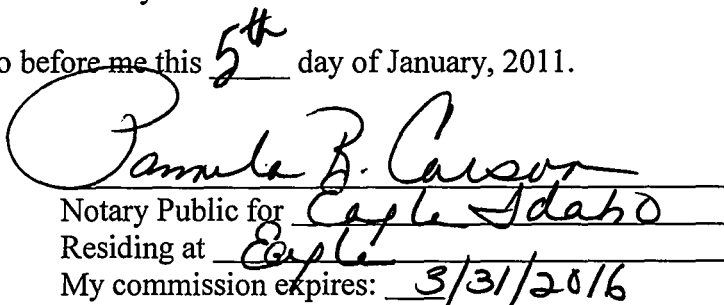 o before me this 5th day of January, 2011.
Pamela B. Carson
Notary Public for Eagle Idaho
Residing at Eagle
My commission expires: 3/31/2016